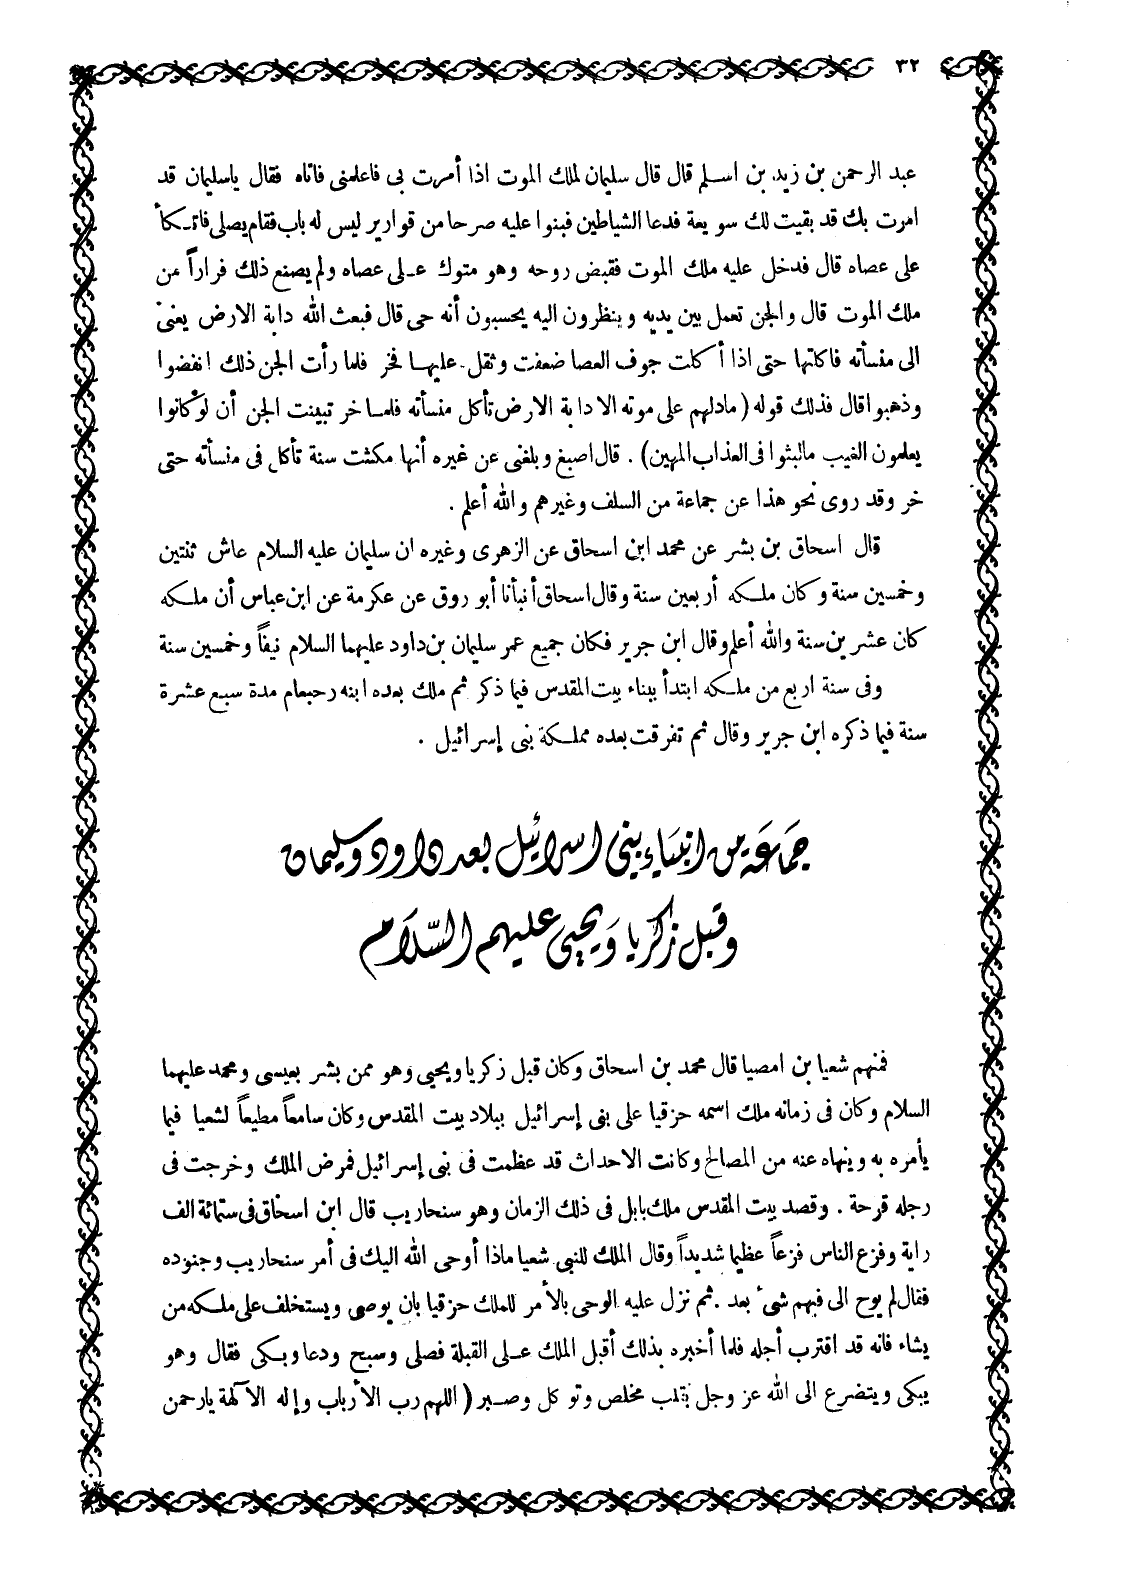 ٣٢
عبد الرحمن بن زيد بن اسلم قال قال سليمان لملك الموت اذا أمرت بى فاعلمنى فاتاه فقال ياسليمان قد
امرت بك قد بقيت لك سويعة فدعا الشياطين فبنوا عليه صرحا من قوارير ليس له باب فقام يصلى فاتكأ
على عصاه قال فدخل عليه ملك الموت فقبض روحه وهو متوك على عصاه ولم يصنع ذلك فراراً من
ملك الموت قال والجن تعمل بين يديه وينظرون اليه يحسبون أنه حى قال فبعث الله دابة الارض يعنى
الى منسأته فاكلتها حتى اذا أكلت جوف العصا ضعفت وثقل عليها فخر فلما رأت الجن ذلك انفضوا
وذهبوا قال فذلك قوله ( مادلهم على موته الا دابة الارض تأكل منسأته فلما خر تبينت الجن أن لو كانوا
يعلمون الغيب مالبثوا فى العذاب المهين) . قال اصبغ وبلغنى عن غيره أنها مكثت سنة تأكل فى منسأته حتى
خر وقد روى نحو هذا عن جماعة من السلف وغيرهم والله أعلم .
قال اسحاق بن بشر عن محمد ابن اسحاق عن الزهرى وغيره ان سليمان عليه السلام عاش ثنتين
وخمسين سنة وكان ملكه أربعين سنة وقال اسحاق أنبأنا أبو روق عن عكرمة عن ابن عباس أن ملكه
كان عشرين سنة والله أعلم وقال ابن جرير فكان جميع عمر سليمان بن داود عليهما السلام نيفاً وخمسين سنة
وفى سنة اربع من ملكه ابتدأ ببناء بيت المقدس فيما ذكر ثم ملك بعده ابنه رحبعام مدة سبع عشرة
سنة فيما ذكره ابن جرير وقال ثم تفرقت بعده مملكة بنى إسرائيل .
جماعة من انبياء بني اسرائيل بعد داود وسليمان
وقبل زكريا ويحيى عليهم السلام
فمنهم شعيا بن امصيا قال محمد بن اسحاق وكان قبل زكريا ويحيى وهو ممن بشر بعيسى ومحمد عليهما
السلام وكان فى زمانه ملك اسمه حزقيا على بنى إسرائيل ببلاد بيت المقدس وكان سامعاً مطيعاً لشعيا فيما
يأمره به وينهاه عنه من المصالح وكانت الاحداث قد عظمت فى بنى إسرائيل فمرض الملك وخرجت فى
رجله قرحة . وقصد بيت المقدس ملك بابل فى ذلك الزمان وهو سنحاريب قال ابن اسحاق فى ستمائة الف
راية وفزع الناس فزعاً عظيما شديداً وقال الملك للنبي شعيا ماذا أوحى الله اليك فى أمر سنحاريب وجنوده
فقال لم يوح الى فيهم شىء بعد . ثم نزل عليه الوحى بالأمر للملك حزقيا بان يوصى ويستخلف على ملكه من
يشاء فانه قد اقترب أجله فلما أخبره بذلك أقبل الملك على القبلة فصلى وسبح ودعا وبكى فقال وهو
يبكى ويتضرع الى الله عز وجل بقلب مخلص وتوكل وصبر ( اللهم رب الأرباب وإله الآلهة يارحمن